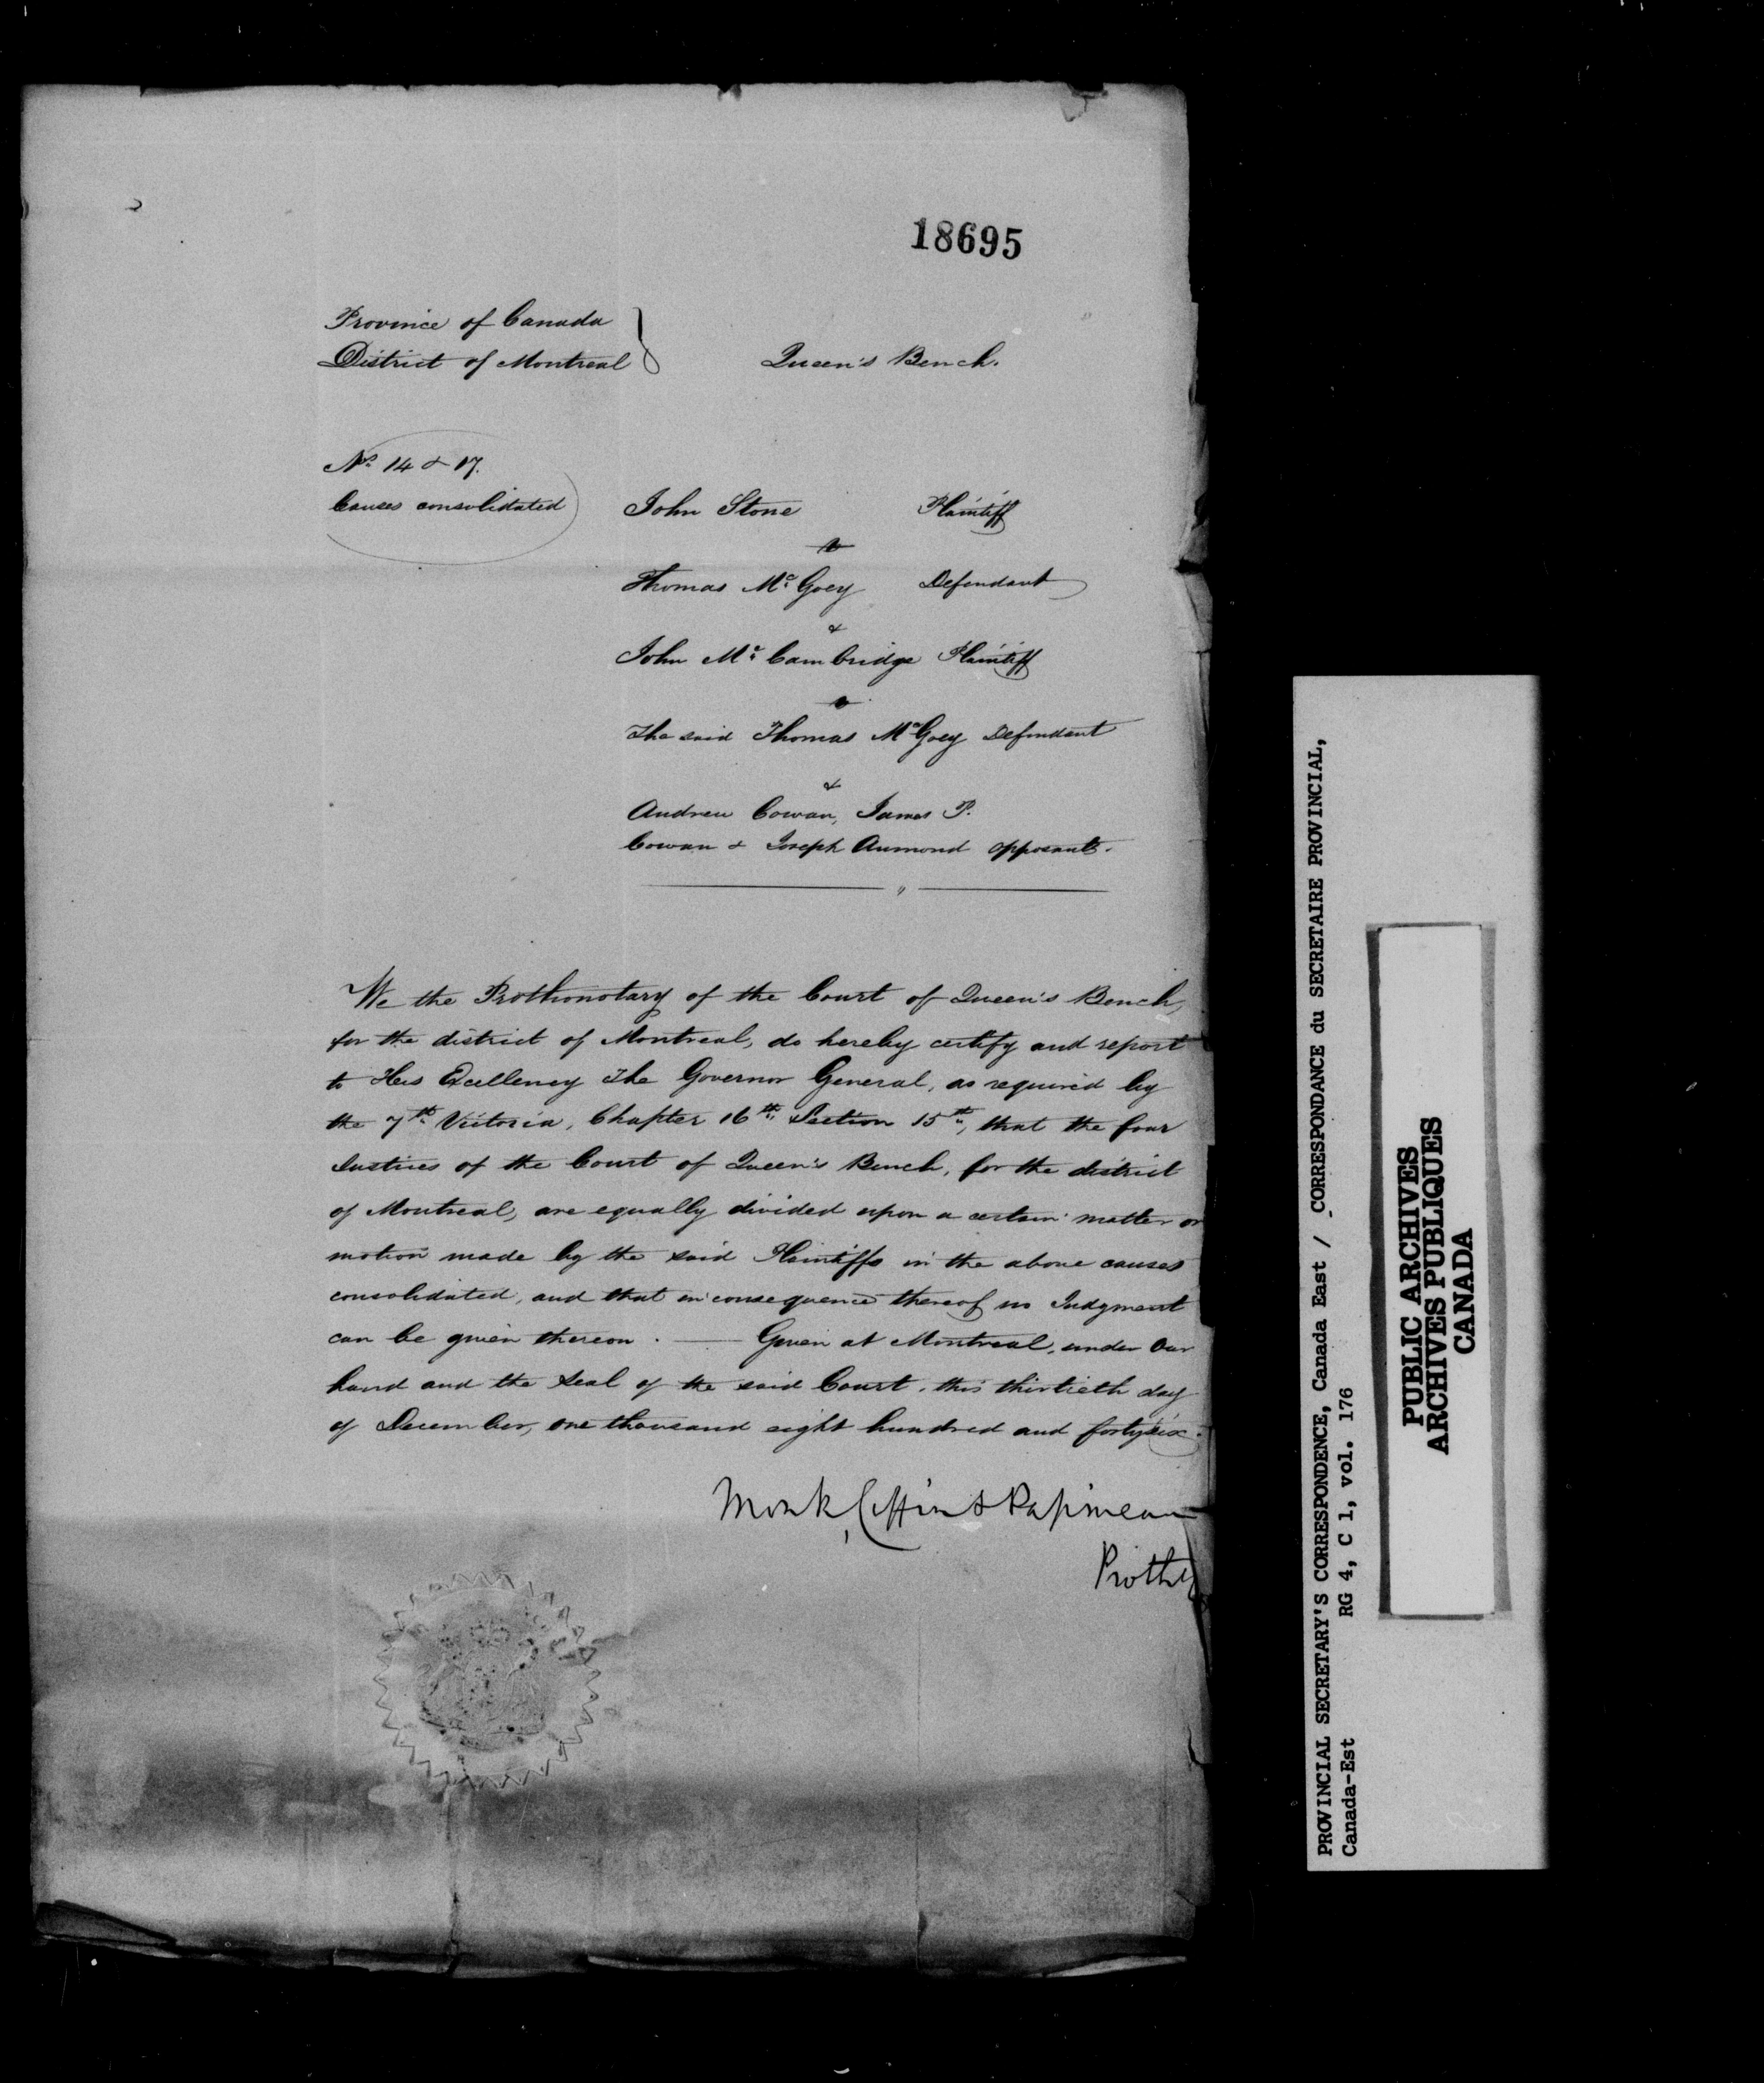 18695
Province of Canada
District of Montreal
Queen's Bench.
Nos. 14 & 17.
Causes consolidated
John Stone Plaintiff
v
Thomas Mc. Goey Defendant
&
John Mc. Cambridge Plaintiff
v
The said Thomas McGoey Defendant
&
Andrew Cowan, James P.
Cowan & Joseph Aumond opposants.
We the Prothonotary of the Court of Queen's Bench,
for the district of Montreal, do hereby certify and report
to His Excellency The Governor General, as required by
the 7th Victoria, Chapter 16th Section 15th, that the four
Justices of the Court of Queen's Bench, for the district
of Montreal, are equally divided upon a certain matter or
motion made by the said Plaintiffs in the above causes
consolidated, and that in consequence thereof no Judgment
can be given thereon. — Given at Montreal, under Our
hand and the Seal of the said Court, this thirtieth day
of December, one thousand eight hundred and forty six.
Monk, Coffin & Papineau
Prothy
PROVINCIAL SECRETARY'S CORRESPONDENCE, Canada East / CORRESPONDANCE du SECRETAIRE PROVINCIAL,
Canada-Est RG 4, C 1, vol. 176
PUBLIC ARCHIVES
ARCHIVES PUBLIQUES
CANADA